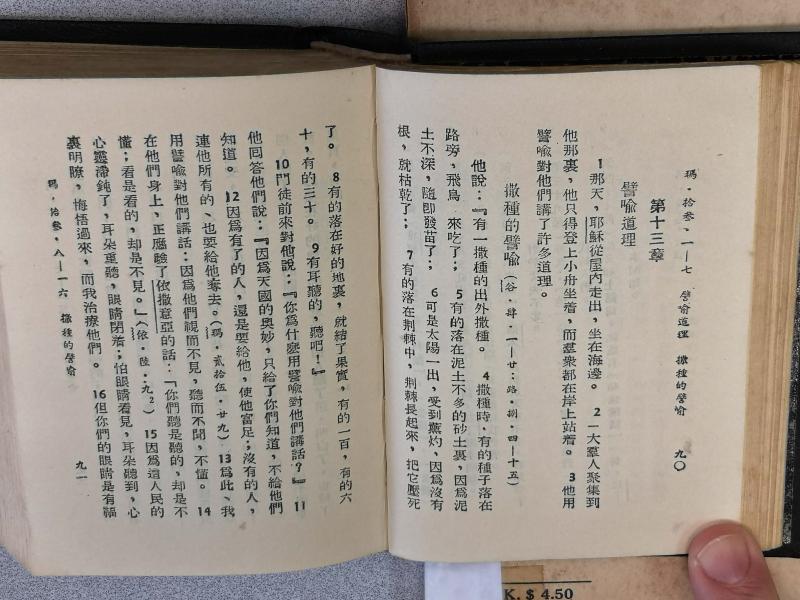 瑪·拾叁，一—七　譬喻道理　撒種的譬喻　九〇
第十三章
譬喻道理
1 那天，耶穌從屋內走出，坐在海邊。　2 一大羣人聚集到
他那裏，他只得登上小舟坐着，而羣衆都在岸上站着。　3 他用
譬喻對他們講了許多道理。
撒種的譬喻（谷·肆·一—廿；路·捌·四—十五）
他說：『有一撒種的出外撒種。　4 撒種時，有的種子落在
路旁，飛鳥　來吃了；　5 有的落在泥土不多的砂土裏，因爲泥
土不深，隨即發苗了；　6 可是太陽一出，受到薰灼，因爲沒有
根，就枯乾了；　7 有的落在荆棘中，荆棘長起來，把它壓死
了。　8 有的落在好的地裏，就結了果實，有的一百，有的六
十，有的三十。　9 有耳聽的，聽吧！』
10 門徒前來對他說：『你爲什麽用譬喻對他們講話？』　11
他回答他們說：『因爲天國的奧妙，只給了你們知道，不給他們
知道。　12 因爲有了的人，還是要給他，使他富足；沒有的人，
連他所有的、也要給他奪去。（瑪·貳拾伍·廿九）　13 爲此、我
用譬喻對他們講話：因爲他們視而不見，聽而不聞，不懂。　14
在他們身上，正應驗了依撒意亞的話：「你們聽是聽的，却是不
懂；看是看的，却是不見。」（依·陸·九2）　15 因爲這人民的
心靈滯鈍了，耳朶重聽，眼睛閉着；怕眼睛看見，耳朶聽到，心
裏明瞭，悔悟過來，而我治療他們。　16 但你們的眼睛是有福
瑪·拾叁，八—一六　撒種的譬喻　九一
K. $ 4.50